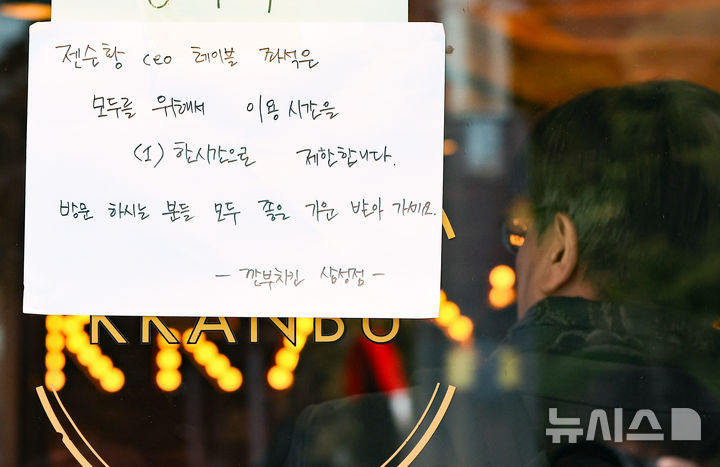 젠슨황 ceo 테이블 좌석은
모두를 위해서 이용 시간을
(1) 한시간으로 제한합니다.
방문 하시는 분들 모두 좋은 기운 받아 가세요.
- 깐부치킨 삼성점 -
KKANBU
뉴시스